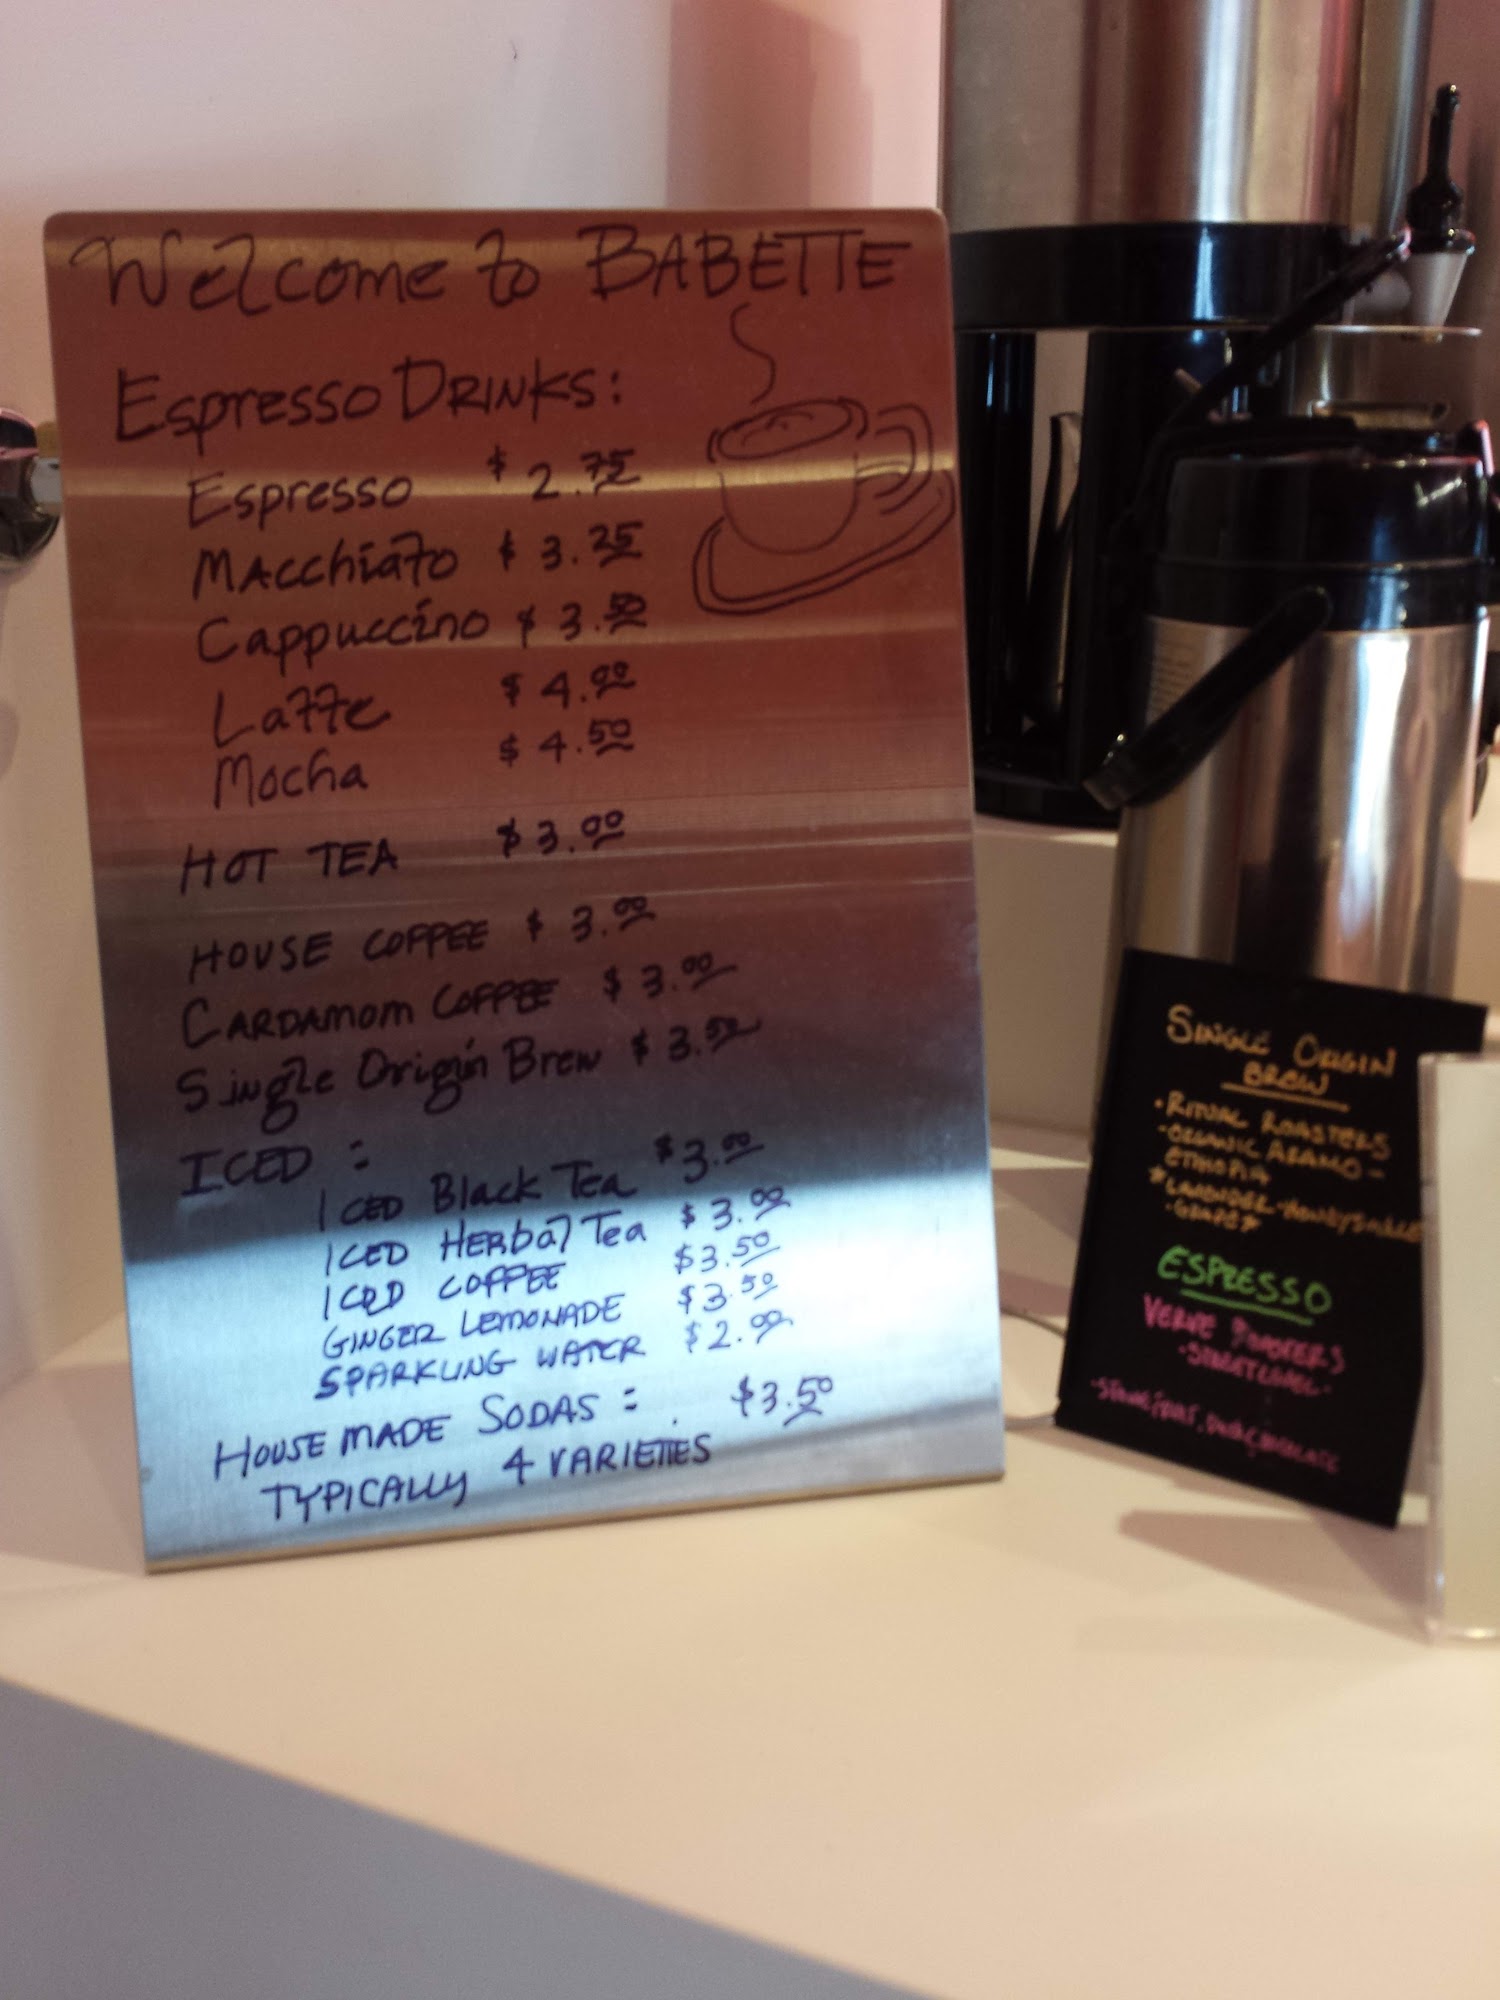 Welcome to BABETTE
Espresso DRINKS:
Espresso $2.75
Macchiato $3.25
Cappuccino $3.50
Latte $4.00
Mocha $4.50
HOT TEA $3.00
HOUSE COFFEE $3.00
CARDAMOM COFFEE $3.00
Single Origin Brew $3.50
ICED:
ICED Black Tea $3.00
ICED HERbal Tea $3.00
ICED COFFEE $3.50
GINGER LEMONADE $3.50
SPARKLING WATER $2.00
HOUSEMADE SODAS: $3.50
TYPICALLY 4 VARIETIES
SINGLE ORIGIN
BREW
• RITUAL ROASTERS
- ORGANIC
ETHIOPIA
LAVENDER - HONEYSUCKLE
- GRAPE
ESPRESSO
VERVE ROASTERS